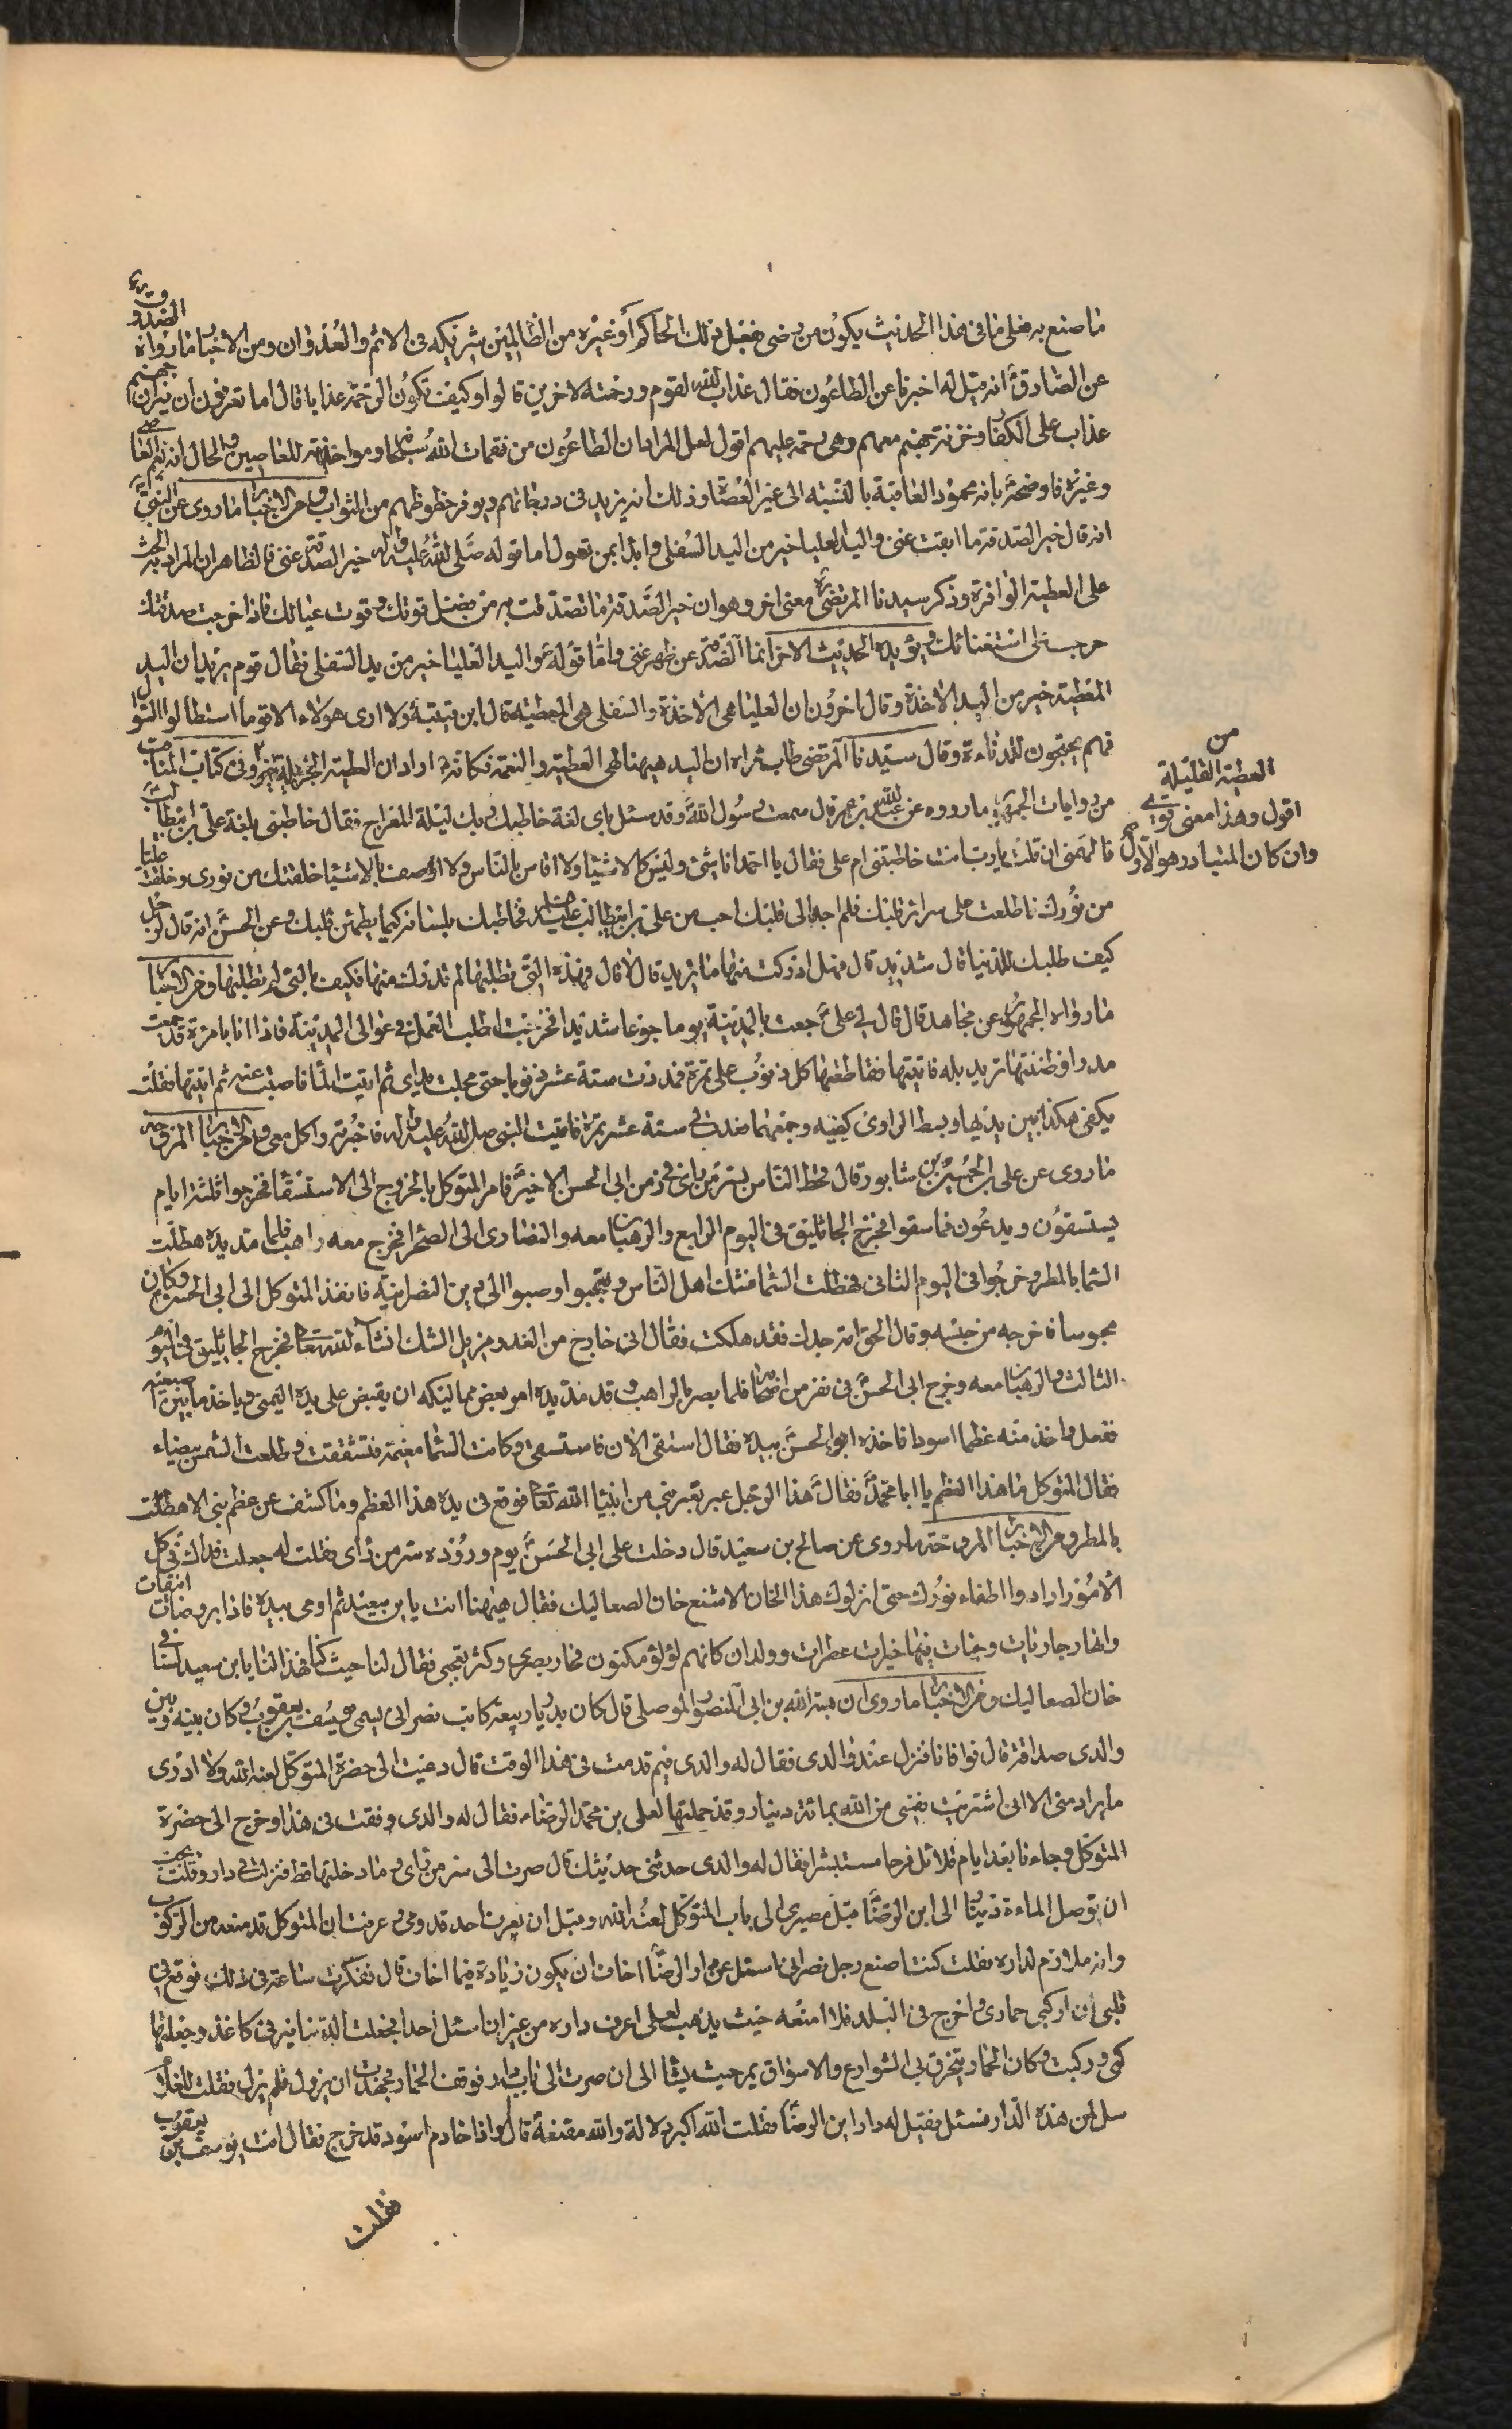 ما صنع به فعلى ما في هذا الحديث يكون من رضى بفعل ذلك الحاكم أو غيره من الظالمين شريكه في الاثم والعدوان ومن الاخبار ما رواه الصدوق ره
عن الصادق ع انه قيل له اخبرنا عن الطاعون فقال عذاب الله لقوم ورحمة لاخرين قالوا وكيف تكون الرحمة عذابا قال اما تعرفون ان نيران جهنم
عذاب على الكفار وخزنة جهنم معهم وهي رحمة عليهم اقول لعل المراد ان الطاعون من نقمات الله سبحانه ومواخذته للعاصين والحال انه يعم العاصي
وغيره فاوضح ع بانه محمود العاقبة بالنسبة الى غير العصاة وذلك انه يزيد في درجاتهم ويوفر حظوظهم من الثواب ومن الاخبار ما روى عن النبي ص
انه قال خير الصدقة ما ابقت غنى واليد العليا خير من اليد السفلى وابدا بمن تعول اما قوله صلى الله عليه واله خير الصدقة غنى فالظاهر ان المراد به الحث
على العطية الوافرة وذكر سيدنا المرتضى ره معنى اخر وهو ان خير الصدقة ما تصدقت به من فضل قوتك وقوت عيالك فاذا خرجت صدقتك
خرجت على استغنائك ويؤيده الحديث الاخر انما الصدقة عن ظهر غنى واما قوله ع واليد العليا خير من يد السفلى فقال قوم يريد ان اليد
المعطية خير من اليد الاخذة وقال اخرون ان العليا هي الاخذة والسفلى هي المعطية قال ابن قتيبة ولا ارى هؤلاء الا قوما استطالوا السؤال
فهم يحتجون للدناءة وقال سيدنا المرتضى طاب ثراه ان اليد هيهنا هي العطية والنعمة فكانه ع اراد ان العطية الجزيلة خير وفي كتاب المناقب
من
العطية القليلة
اقول وهذا معنى قوي
وان كان المتبادر هو الاول صح
من روايات الجمهور ما رووه عن عبدالله بن عمر قال سمعت رسول الله ص وقد سئل باي لغة خاطبك ربك ليلة المعراج فقال خاطبني بلغة علي بن ابيطالب ع
فالهمني ان قلت يا رب انت خاطبتني ام علي فقال يا احمد انا شئ وليس كالاشياء ولا اقاس بالناس ولا اوصف بالاشياء خلقتك من نوري وخلقت عليا
من نورك فاطلعت على سرائر قلبك فلم اجد الى قلبك احب من علي بن ابيطالب عليه السلام فخاطبتك بلسانه كيما يطمئن قلبك وعن الحسن ع انه قال لرجل
كيف طلبك للدنيا قال شديد قال فهل ادركت منها ما تريد قال لا قال فهذه التي تطلبها لم تدرك منها فكيف بالتي لم تطلبها ومن الاخبار
ما رواه الجمهور عن مجاهد قال قال لي علي ع جعت بالمدينة يوما جوعا شديدا فخرجت اطلب العمل في عوالي المدينة فاذا انا بامرءة قد جمعت
مدرا فظننتها تريد بله فاتيتها فقاطعتها كل ذنوب على تمرة فمددت ستة عشر ذنوبا حتى مجلت يداي ثم اتيت الماء فاصبت منه ثم اتيتها فقلت
بكفي هكذا بين يديها وبسط الراوي كفيه وجمعهما فعدت لي ستة عشر تمرة فاتيت النبي صلى الله عليه واله فاخبرته واكل معي ومن الاخبار المروحة
ما روى عن علي بن الحسين بن سابور قال قحط الناس بسر من راى في زمن ابي الحسن الاخير ع فامر المتوكل بالخروج الى الاستسقاء فخرجوا ثلثة ايام
يستسقون ويدعون فما سقوا فخرج الجاثليق في اليوم الرابع والرهبان معه والنصارى الى الصحراء فخرج معه راهب فلما مد يده هطلت
السماء بالمطر وخرجوا في اليوم الثاني فهطلت السماء فشك اهل الناس وتعجبوا وصبوا الى دين النصرانية فانفذ المتوكل الى ابي الحسن ع وكان
محبوسا فاخرجه من حبسه وقال الحق امة جدك فقد هلكت فقال اني خارج من الغد ومزيل الشك انشاء الله تعالى فخرج الجاثليق في اليوم
الثالث والرهبان معه وخرج ابى الحسن ع في نفر من اصحابه فلما بصر بالراهب وقد مد يده امر بعض مماليكه ان يقبض على يده اليمنى وياخذ ما بين اصبعيه
ففعل واخذ منه عظما اسود فاخذه ابو الحسن ع بيده فقال استسقى الان فاستسقى وكانت السماء مغيمة فتشققت وطلعت الشمس بيضاء
فقال المتوكل ما هذا العظم يا ابا محمد ع فقال ع هذا الرجل عبر بقبر نبي من انبياء الله تعالى فوقع في يده هذا العظم وما كشف عن عظم نبي الا هطلت
بالمطر ومن الاخبار المروحة ما روى عن صالح بن سعيد قال دخلت على ابي الحسن ع يوم وروده سر من راى فقلت له جعلت فداك في كل
الامور ارادوا اطفاء نورك حتى انزلوك هذا الخان الاشنع خان الصعاليك فقال هيهنا انت يا بن سعيد ثم اومى بيده فاذا بروضات انيقات
وانهار جاريات وجنات فيها خيرات عطرات وولدان كانهم لؤلؤ مكنون فحار بصري وكثر تعجبي فقال لنا حيث كنا فهذا لنا يا بن سعيد لسنا في
خان الصعاليك ومن الاخبار ما روى ان هبة الله بن ابي المنصور الموصلي قال كان بديار ربيعة كاتب نصراني يسمى يوسف بن يعقوب وكان بينه وبين
والدي صداقة قال فوافانا فنزل عند والدي فقال له والدي فيم قدمت في هذا الوقت قال دعيت الى حضرة المتوكل لعنه الله ولا ادري
ما يراد مني الا اني اشتريت نفسي من الله بمائة دينار وقد حملتها لعلي بن محمد الرضاء فقال له والدي وفقت في هذا وخرج الى حضرة
المتوكل وجاءنا بعد ايام قلائل فرحا مستبشرا فقال له والدي حدثني حديثك قال صرت الى سر من راى وما دخلتها قط فنزلت في دار وقلت يجب
ان توصل الماءة دينار الى ابن الرضا ع قبل مصيري الى باب المتوكل لعنه الله وقبل ان يعرف احد قدومي وعرفت ان المتوكل قد منعه من الركوب
وانه ملازم لداره فقلت كيف اصنع رجل نصراني اسئل عن دار ابن الرضا اخاف ان يكون زيادة فيما اخاف قال ففكرت ساعة في ذلك فوقع في
قلبي ان اركب حماري واخرج في البلد فلا امنعه حيث يذهب لعلي اعرف داره من غير ان اسئل احدا فجعلت الدنانير في كاغذ وجعلتها في
كمي وركبت وكان الحمار يتخرق بي الشوارع والاسواق يمر حيث يشاء الى ان صرت الى باب دار فوقف الحمار فجهدت ان يزول فلم يزل فقلت للغلام
سل لمن هذه الدار فسئل فقيل له دار ابن الرضا ع فقلت الله اكبر دلالة والله مقنعة قال واذا خادم اسود قد خرج فقال انت يوسف بن يعقوب
فقلت